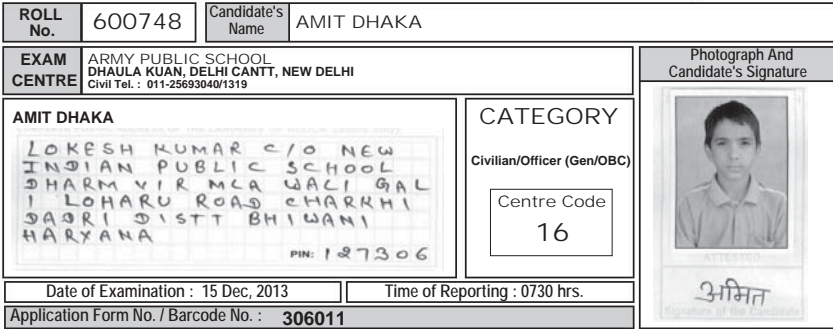 ROLL No. 600748 Candidate's Name AMIT DHAKA
EXAM CENTRE
ARMY PUBLIC SCHOOL
DHAULA KUAN, DELHI CANTT, NEW DELHI
Civil Tel. : 011-25693040/1319
Photograph And
Candidate's Signature
AMIT DHAKA
LOKESH KUMAR C/O NEW
INDIAN PUBLIC SCHOOL
DHARM VIR MLA WALI GAL
I LOHARU ROAD CHARKHI
DADRI DISTT BHIWANI
HARYANA
PIN: 127306
CATEGORY
Civilian/Officer (Gen/OBC)
Centre Code
16
ATTESTED
अमित
Signature of the Candidate
Date of Examination : 15 Dec, 2013
Time of Reporting : 0730 hrs.
Application Form No. / Barcode No. : 306011